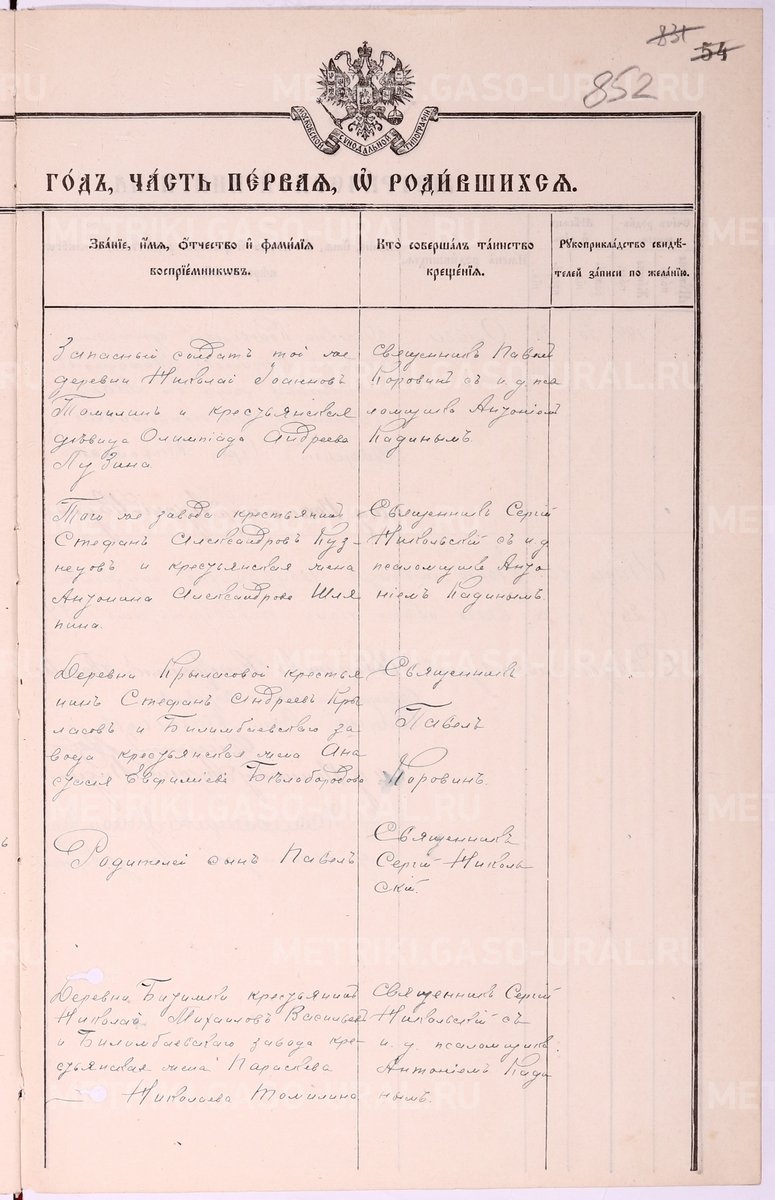 831
54
852
МОСКОВСКОЙ СѴНОДАЛЬНОЙ ТИПОГРАФІИ
ГО́ДЪ, ЧА́СТЬ ПЕ́РВАЯ, Ѡ РОДИ́ВШИХСЯ.
Зва́нїе, и́мя, о́тчество и҆ фами́лїя
воспрїе́мникѡвъ.
Кто̀ соверша́лъ та́инство
креще́нїя.
Рꙋкоприкла́дство свидѣ́-
телей за́писи по жела́нїю.
Запасный солдатъ той же
деревни Николай Іоанновъ
Томилинъ и крестьянская
дѣвица Олимпіада Андреева
Пузина
Священникъ Павелъ
Коровинъ съ и.д. пса
ломщика Антоніемъ
Кадинымъ.
Того же завода крестьянинъ
Стефанъ Александровъ Куз-
нецовъ и крестьянская жена
Антонина Александрова Шля
пина.
Священникъ Сергій
Никольскій съ и.д
псаломщика Анто
ніемъ Кадинымъ
Деревни Крыласовой крестья
нинъ Стефанъ Андреевъ Кры
ласовъ и Билимбаевскаго за
вода крестьянская жена Ана
стасія Евфиміева Бѣлобородова
Священникъ
Павелъ
Коровинъ.
Родителей сынъ Павелъ
Священникъ
Сергій Николь
скій.
Деревни Битимки крестьянинъ
Николай Михаиловъ Васильевъ
и Билимбаевскаго завода кре-
стьянская жена Параскева
Николаева Томилина
Священникъ Сергій
Никольскій съ
и. д. псаломщика
Антоніемъ Кади
нымъ.
METRIKI.GASO-URAL.RU